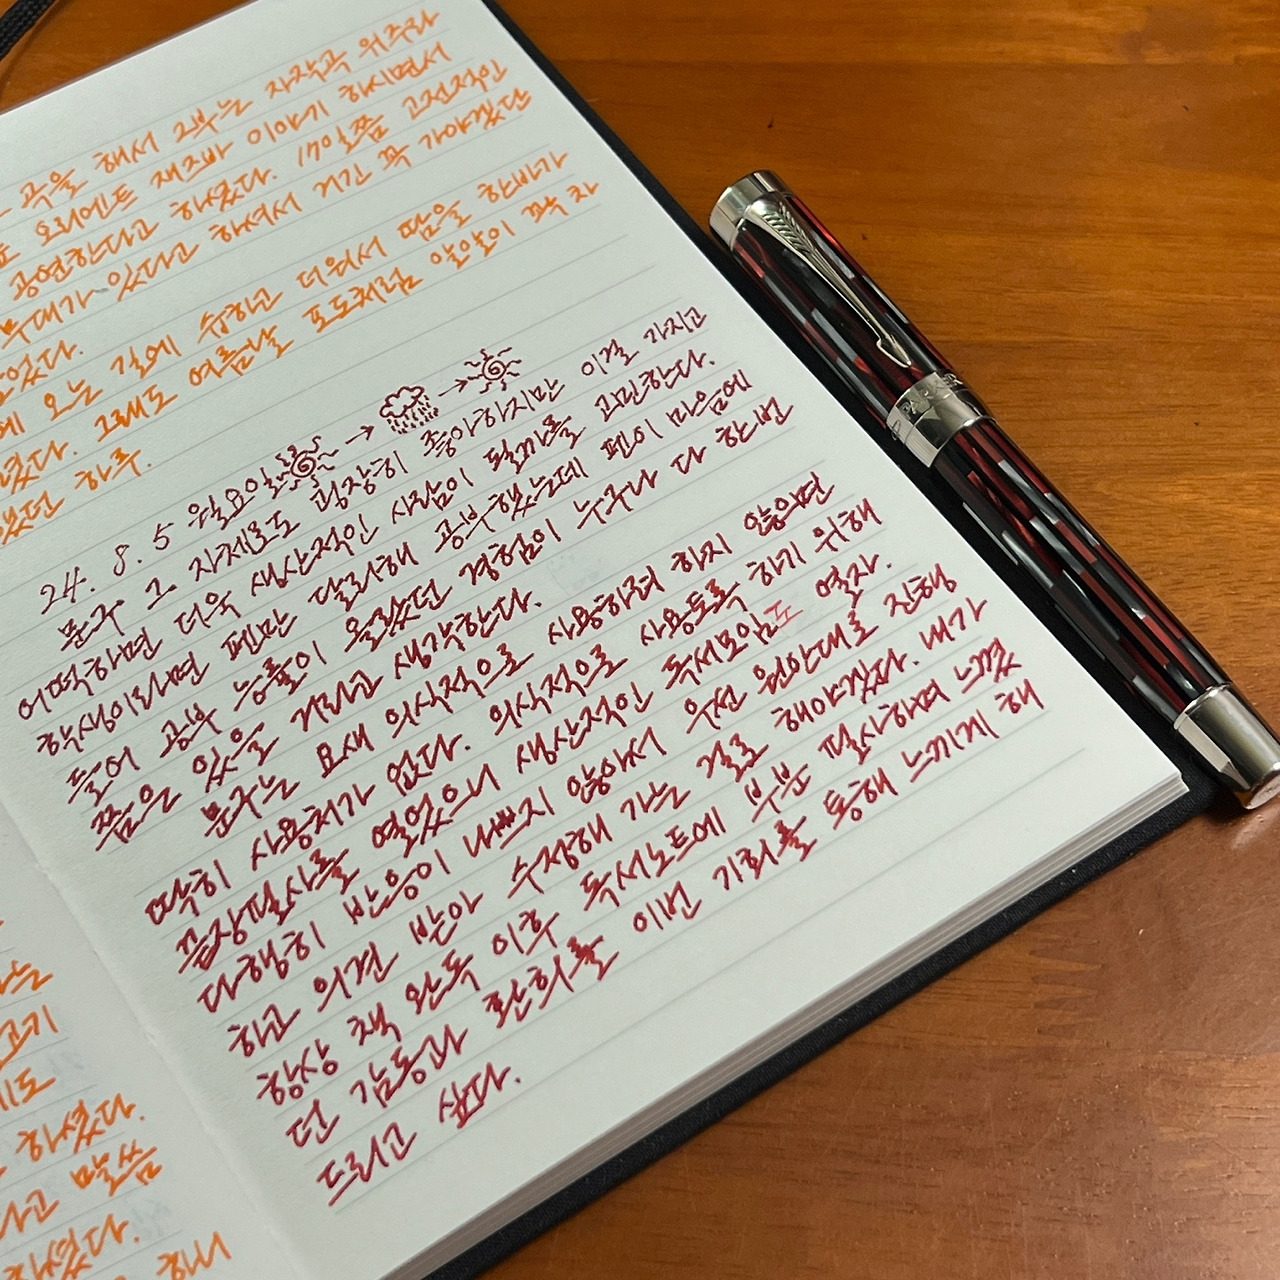 곡을 해서 2부는 자작곡 위주라
오리엔트 재즈바 이야기 하시면서
공연한다고 하셨다. 170일쯤 고전적인
무대가 있다고 하셔서 거긴 꼭 가야겠단
었다.
오는 길에 습하고 더워서 땀을 한바가
그래도 여름날 포도처럼 알알이 꽉 차
하루.
24. 8. 5 월요일
문구 그 자체로도 굉장히 좋아하지만 이걸 가지고
어떡하면 더욱 생산적인 사람이 될까를 고민한다.
학생이라면 펜만 달리해 공부했는데 펜이 마음에
들어 공부 능률이 올랐던 경험이 누구나 다 한번
쯤은 있을 거라고 생각한다.
문구는 요새 의식적으로 사용하려 하지 않으면
딱히 사용처가 없다. 의식적으로 사용토록 하기 위해
문장필사를 열었으니 생산적인 독서모임도 열자.
다행히 반응이 나쁘지 않아서 우선 원안대로 진행
하고 의견 받아 수정해 가는 걸로 해야겠다. 내가
항상 책 완독 이후 독서노트에 부분 필사하며 느꼈
던 감동과 환희를 이번 기회를 통해 느끼게 해
드리고 싶다.
PARKER
하셨다.
말씀
하니